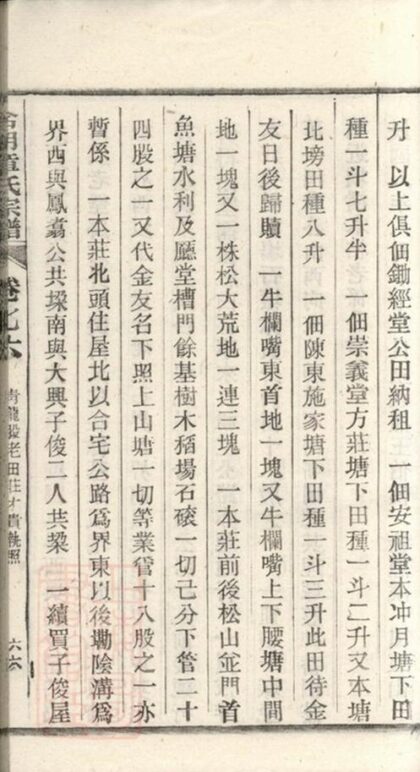 升　以上俱佃鋤經堂公田納租　一佃安祖堂本冲月塘下田
種一斗七升半　一佃崇義堂方莊塘下田種一斗二升又本塘
北塝田種八升　一佃陳東施家塘下田種一斗三升此田待金
友日後歸贖　一牛欄嘴東首地一塊又牛欄嘴上下腰塘中間
地一塊又一株松大荒地一連三塊　一本莊前後松山並門首
魚塘水利及廳堂槽門餘基樹木稻場石磙一切己分下管二十
四股之一又代金友名下照上山塘一切等業管十八股之一亦
暫係　一本莊北頭住屋北以合宅公路爲界東以後墈陰溝爲
界西與鳳翥公共垜南與大興子俊二人共梁　一續買子俊屋
童氏宗譜
卷
青龍股老田莊才貴執照
六六